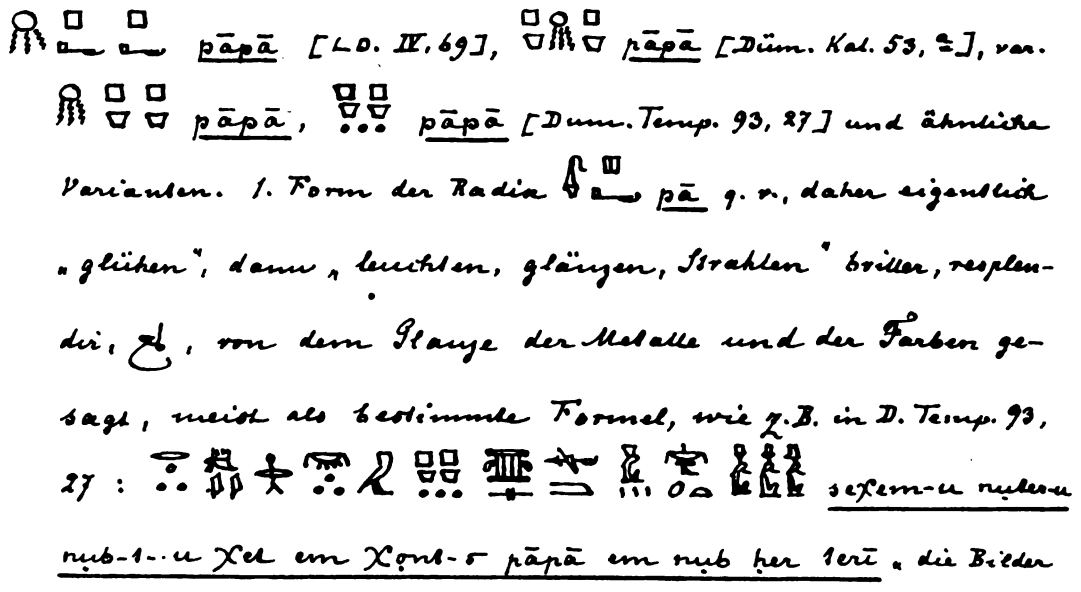 pāpā [LD. IV. 69], pāpā [Düm. Kal. 53, a], var.
pāpā, pāpā [Düm. Temp. 93, 27] und ähnliche
Varianten. 1. Form der Radix pā q. v., daher eigentlich
„glühen“, dann „leuchten, glänzen, strahlen“ briller, resplen-
dir, von dem Glanze der Metalle und der Farben ge-
sagt, meist als bestimmte Formel, wie z.B. in D. Temp. 93,
27 : seχem-u nuter-u
nub-t-u χet em χont-s pāpā em nub ḥer „die Bilder